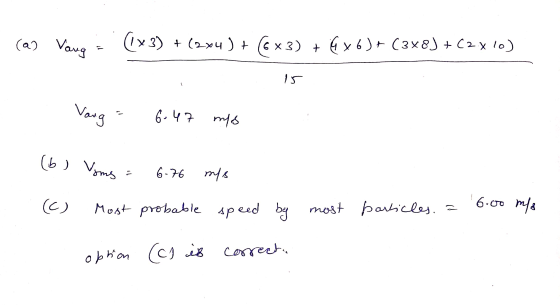 (a) Vavg = (1x3) + (2x4) + (6x3) + (4x6) + (3x8) + (2x10)
15
Vavg = 6.47 m/s
(b) Vrms = 6.76 m/s
(C) Most probable speed by most particles. = 6.00 m/s
option (C) is correct.